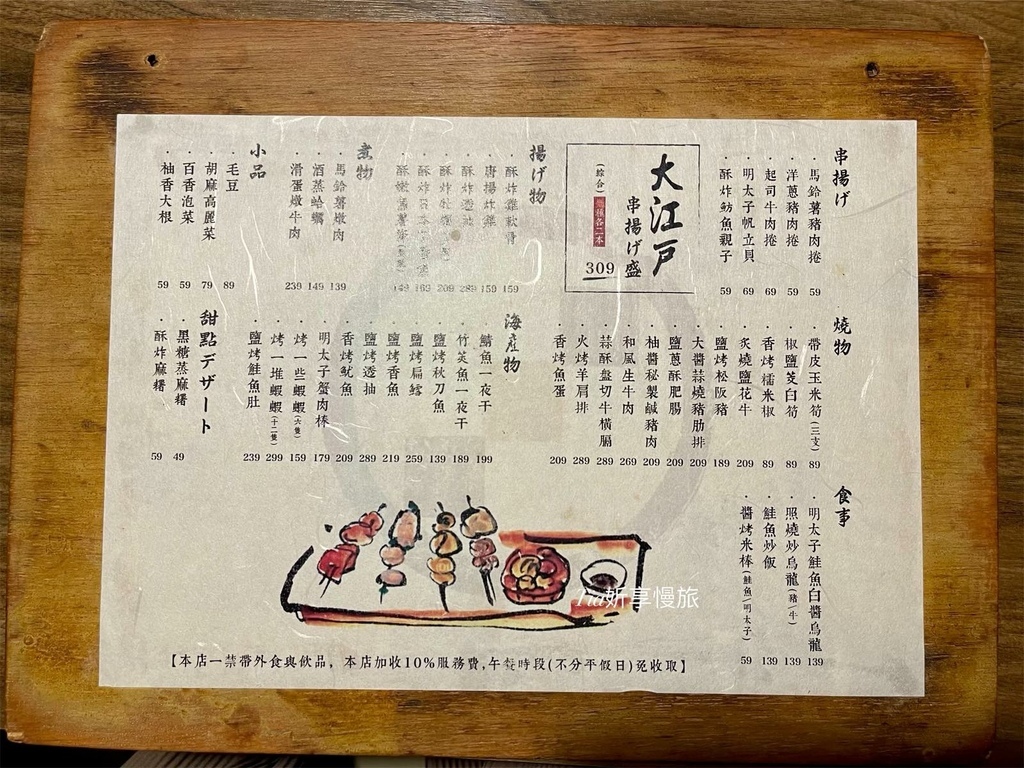 串揚げ
・馬鈴薯豬肉捲 59
・洋蔥豬肉捲 59
・起司牛肉捲 69
・明太子帆立貝 69
・酥炸魴魚親子 59
大江戶
串揚げ盛
(綜合)
309
揚げ物
・酥炸雞軟骨 159
・唐揚炸雞 159
・酥炸透抽 289
209
169
149
煮物
・馬鈴薯燉肉 139
・酒蒸蛤蠣 149
・滑蛋燉牛肉 239
小品
・毛豆 89
・胡麻高麗菜 79
・百香泡菜 59
・柚香大根 59
燒物
・帶皮玉米筍(三支) 89
・椒鹽茭白筍 89
・香烤糯米椒 89
・炙燒鹽花牛 209
・鹽烤松阪豬 189
・大醬蒜燒豬肋排 209
・鹽蔥酥肥腸 209
・柚醬秘製鹹豬肉 209
・和風生牛肉 269
・蒜酥盤切牛橫膈 289
・火烤羊肩排 289
・香烤魚蛋 209
海產物
・鯖魚一夜干 199
・竹筴魚一夜干 189
・鹽烤秋刀魚 139
・鹽烤扁鱈 259
・鹽烤香魚 219
・鹽烤透抽 289
・香烤魷魚 209
・明太子蟹肉棒 179
・烤一些蝦蝦(六隻) 159
・烤一堆蝦蝦(十二隻) 299
・鹽烤鮭魚肚 239
甜點デザート
・黑糖蒸麻糬 49
・酥炸麻糬 59
食事
・明太子鮭魚白醬烏龍 139
・照燒炒烏龍(豬/牛) 139
・鮭魚炒飯 139
・醬烤米棒(鮭魚/明太子) 59
Tia妍享慢旅
【本店一禁帶外食與飲品，本店加收10%服務費,午餐時段(不分平假日)免收取】